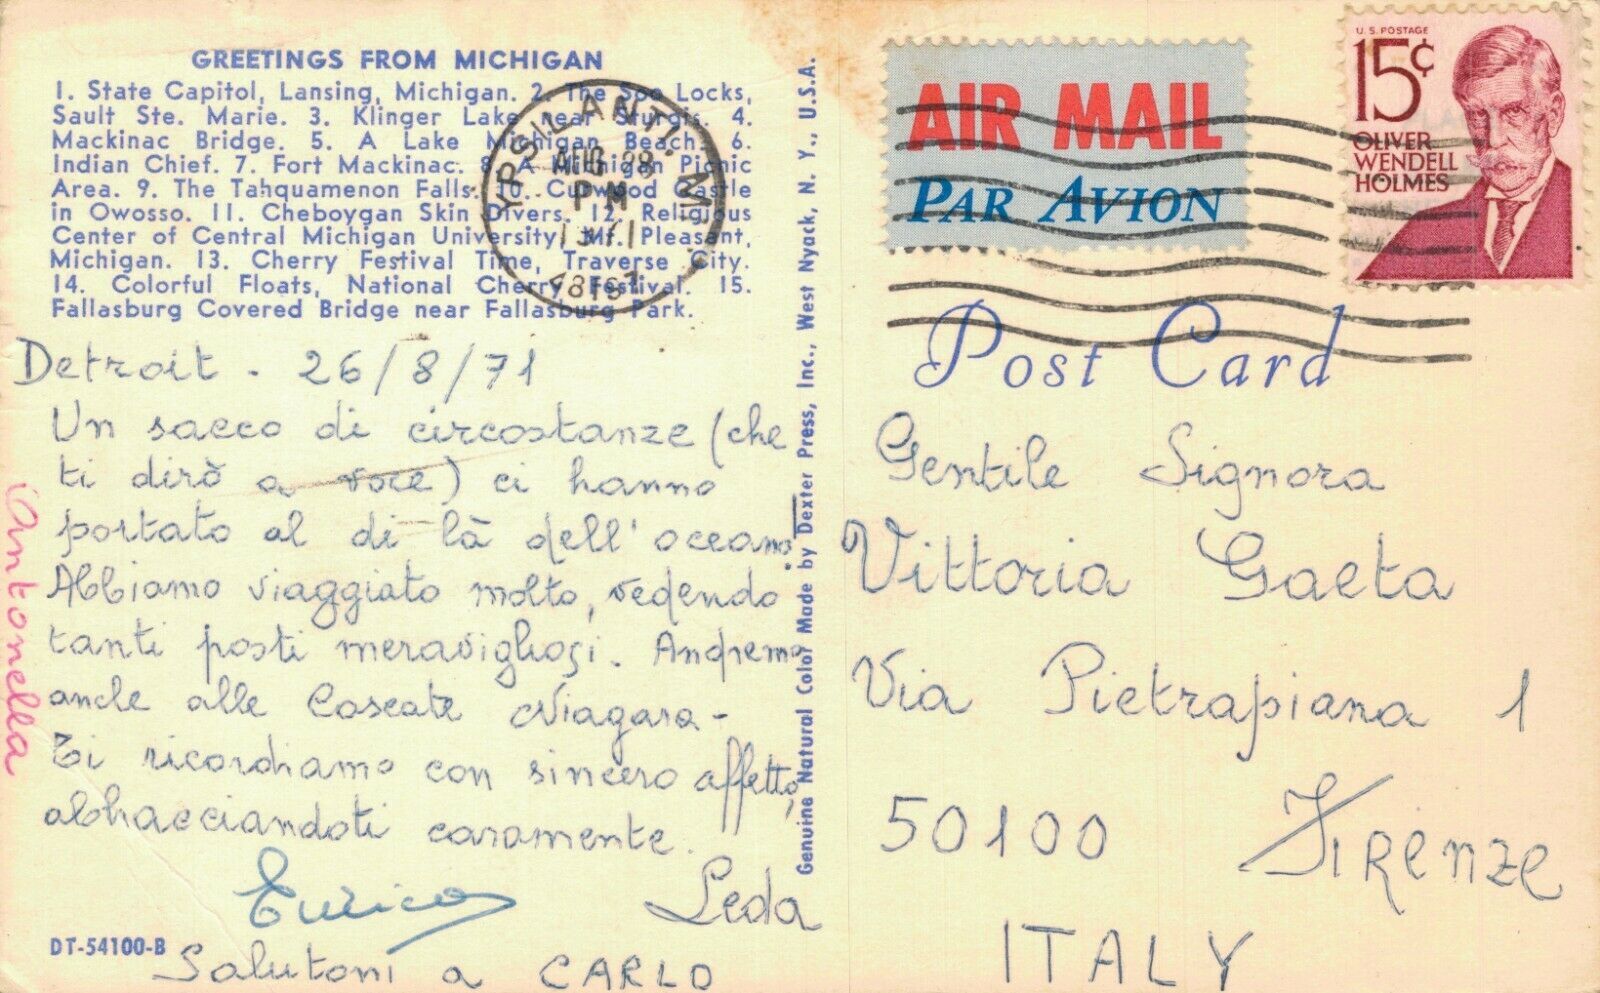 GREETINGS FROM MICHIGAN
1. State Capitol, Lansing, Michigan. 2. The Soo Locks,
Sault Ste. Marie. 3. Klinger Lake near Sturgis. 4.
Mackinac Bridge. 5. A Lake Michigan Beach. 6.
Indian Chief. 7. Fort Mackinac. 8. A Michigan Picnic
Area. 9. The Tahquamenon Falls. 10. Curwood Castle
in Owosso. 11. Cheboygan Skin Divers. 12. Religious
Center of Central Michigan University, Mt. Pleasant,
Michigan. 13. Cherry Festival Time, Traverse City.
14. Colorful Floats, National Cherry Festival. 15.
Fallasburg Covered Bridge near Fallasburg Park.
YPSILANTI, M
AUG 28
PM
1971
48197
Detroit - 26/8/71
Un sacco di circostanze (che
ti dirò a voce) ci hanno
portato al di là dell'oceano.
Abbiamo viaggiato molto, vedendo
tanti posti meravigliosi. Andremo
anche alle Cascate Niagara -
Ti ricordiamo con sincero affetto,
abbracciandoti caramente.
Enrico Leda
Salutoni a CARLO
Antonella
DT-54100-B
Genuine Natural Color Made by Dexter Press, Inc., West Nyack, N. Y., U.S.A.
AIR MAIL
PAR AVION
U.S. POSTAGE
15¢
OLIVER
WENDELL
HOLMES
Post Card
Gentile Signora
Vittoria Gaeta
Via Pietrapiana 1
50100 FIRENZE
ITALY